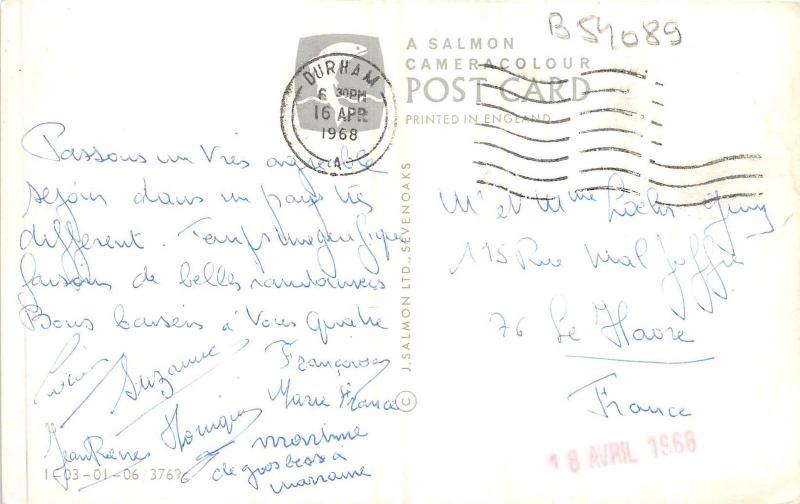 B 54089
A SALMON
CAMERACOLOUR
POST CARD
PRINTED IN ENGLAND
DURHAM
6 30PM
16 APR
1968
A
Passons un très agréable
séjour dans un pays très
différent. Temps magnifique
faisons de belles randonnées
Bons baisers à Vous Quatre
Suzanne
Françoise
Marie France
Jean Pierre Monique
martine
de gros bisous à
marraine
1-03-01-06/3769
© J. SALMON LTD., SEVENOAKS
Mr et Mme
115 Rue Mal Joffre
76 Le Havre
France
18 AVRIL 1968